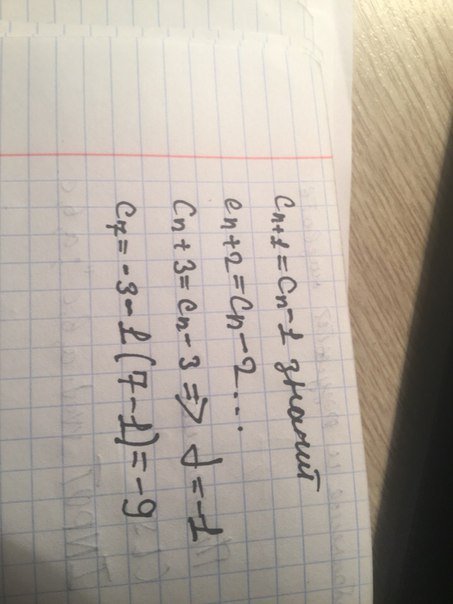 Cn+1=Cn-1 значит
Cn+2=Cn-2...
Cn+3=Cn-3 => d=-1
C7=-3-1(7-1)=-9